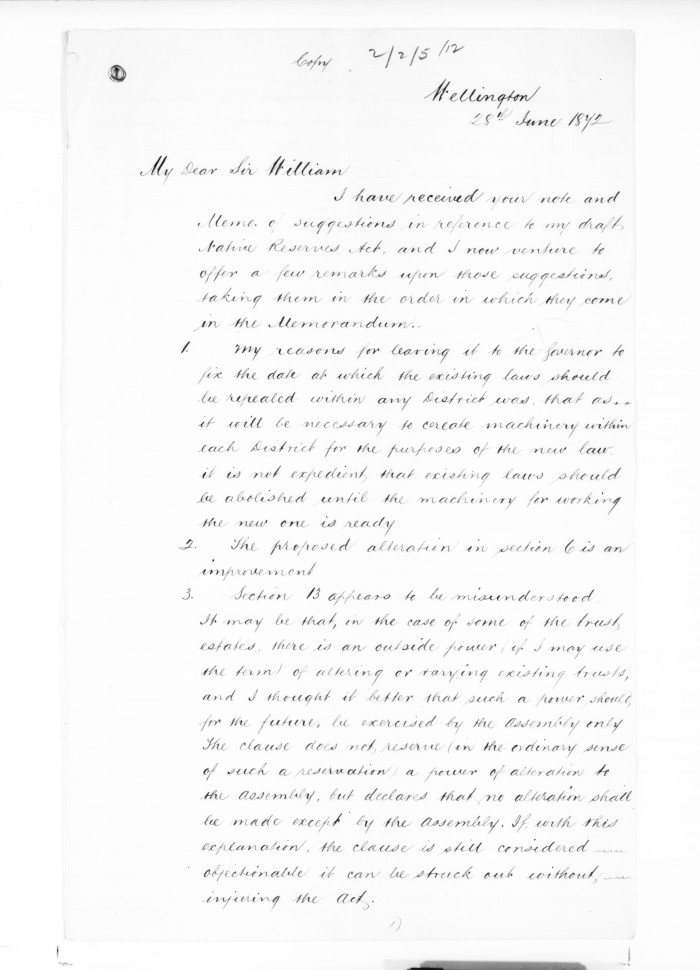 Copy 2/2/5/12
Wellington
28th June 1872
My Dear Sir William
I have received your note and
Memo. of suggestions in reference to my draft
Native Reserves Act, and I now venture to
offer a few remarks upon those suggestions,
taking them in the order in which they come
in the Memorandum.
1. My reasons for leaving it to the Governor to
fix the date at which the existing laws should
be repealed within any District was, that as
it will be necessary to create machinery within
each District for the purposes of the new law.
it is not expedient, that existing laws should
be abolished until the machinery for working
the new one is ready
2. The proposed alteration in section 6 is an
improvement
3. Section 13 appears to be misunderstood.
It may be that, in the case of some of the trust
estates, there is an outside power (if I may use
the term) of altering or varying existing trusts,
and I thought it better that such a power should,
for the future, be exercised by the Assembly only
The clause does not, reserve (in the ordinary sense
of such a reservation) a power of alteration to
the Assembly, but declares that no alteration shall
be made except by the Assembly. If, with this
explanation, the clause is still considered
objectionable it can be struck out without,
injuring the Act.
1)